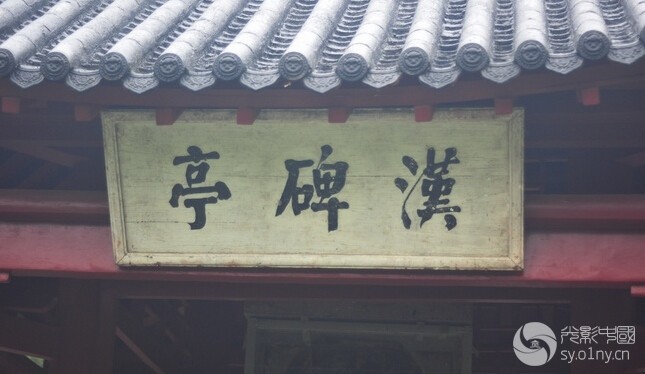 漢碑亭
光影中國
sy.o1ny.cn